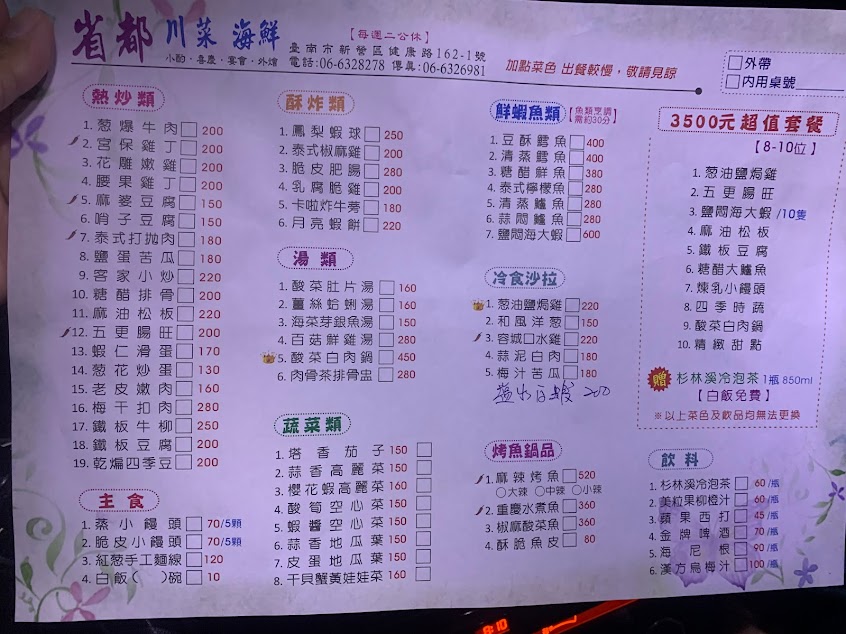 省都 川菜 海鮮
小酌·喜慶·宴會·外燴
【每週二公休】
臺南市新營區健康路162-1號
電話:06-6328278 傳真:06-6326981
加點菜色 出餐較慢,敬請見諒
外帶
內用桌號
熱炒類
1. 葱爆牛肉 200
2. 宮保雞丁 200
3. 花雕嫩雞 200
4. 腰果雞丁 200
5. 麻婆豆腐 150
6. 哨子豆腐 150
7. 泰式打拋肉 180
8. 鹽蛋苦瓜 180
9. 客家小炒 220
10. 糖醋排骨 200
11. 麻油松板 220
12. 五更腸旺 200
13. 蝦仁滑蛋 170
14. 葱花炒蛋 130
15. 老皮嫩肉 160
16. 梅干扣肉 280
17. 鐵板牛柳 250
18. 鐵板豆腐 200
19. 乾煸四季豆 200
主食
1. 蒸小饅頭 70/5顆
2. 脆皮小饅頭 70/5顆
3. 紅葱手工麵線 120
4. 白飯( )碗 10
酥炸類
1. 鳳梨蝦球 250
2. 泰式椒麻雞 200
3. 脆皮肥腸 280
4. 乳腐脆雞 200
5. 卡啦炸牛蒡 180
6. 月亮蝦餅 220
湯類
1. 酸菜肚片湯 160
2. 薑絲蛤蜊湯 160
3. 海菜芽銀魚湯 150
4. 百菇鮮雞湯 280
5. 酸菜白肉鍋 450
6. 肉骨茶排骨盅 280
蔬菜類
1. 塔香茄子 150
2. 蒜香高麗菜 150
3. 櫻花蝦高麗菜 160
4. 酸筍空心菜 150
5. 蝦醬空心菜 150
6. 蒜香地瓜葉 150
7. 皮蛋地瓜葉 150
8. 干貝蟹黃娃娃菜 160
鮮蝦魚類
【魚類烹調需約30分】
1. 豆酥鱈魚 400
2. 清蒸鱈魚 400
3. 糖醋鮮魚 380
4. 泰式檸檬魚 280
5. 清蒸鱸魚 280
6. 蒜悶鱸魚 280
7. 鹽悶海大蝦 600
冷食沙拉
1. 葱油鹽焗雞 220
2. 和風洋葱 150
3. 容城口水雞 220
4. 蒜泥白肉 180
5. 梅汁苦瓜 180
鹽水白蝦 200
烤魚鍋品
1. 麻辣烤魚 520
○大辣 ○中辣 ○小辣
2. 重慶水煮魚 360
3. 椒麻酸菜魚 360
4. 酥脆魚皮 80
3500元超值套餐
【8-10位】
1. 葱油鹽焗雞
2. 五更腸旺
3. 鹽悶海大蝦/10隻
4. 麻油松板
5. 鐵板豆腐
6. 糖醋大鱸魚
7. 煉乳小饅頭
8. 四季時蔬
9. 酸菜白肉鍋
10. 精緻甜點
贈 杉林溪冷泡茶1瓶 850ml
【白飯免費】
※以上菜色及飲品均無法更換
飲料
1. 杉林溪冷泡茶 60/瓶
2. 美粒果柳橙汁 60/瓶
3. 蘋果西打 45/瓶
4. 金牌啤酒 70/瓶
5. 海尼根 90/瓶
6. 漢方烏梅汁 100/瓶
8:10